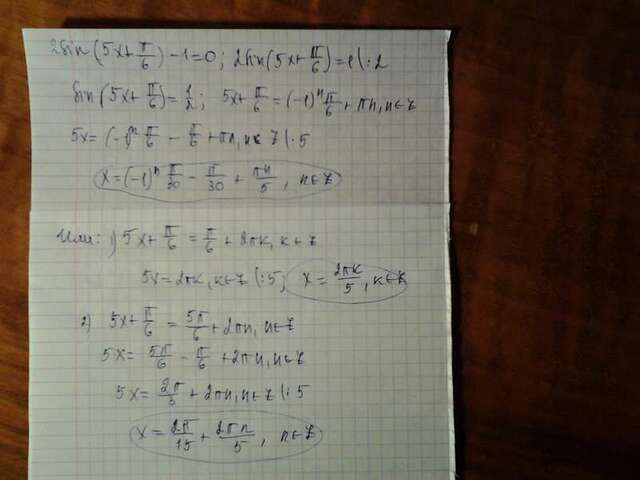 2sin(5x+π/6)-1=0; 2sin(5x+π/6)=1 |:2
sin(5x+π/6)=1/2; 5x+π/6=(-1)ⁿπ/6+πn, n∈Z
5x=(-1)ⁿπ/6-π/6+πn, n∈Z |:5
x=(-1)ⁿπ/30-π/30+πn/5, n∈Z
Или: 1) 5x+π/6=π/6+2πk, k∈Z
5x=2πk, k∈Z |:5; x=2πk/5, k∈Z
2) 5x+π/6=5π/6+2πn, n∈Z
5x=5π/6-π/6+2πn, n∈Z
5x=2π/3+2πn, n∈Z |:5
x=2π/15+2πn/5, n∈Z